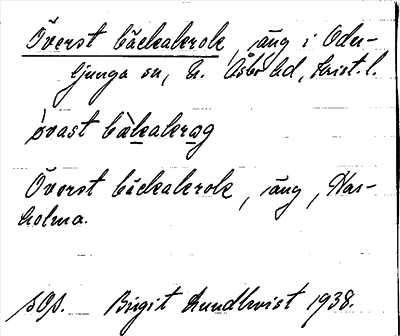 Överst bäckakrok, äng i Oder-
ljunga sn, N. Åsbo hd, Krist. l.
øvast bækakrog
Överst bäckakrok, äng, Kas-
holma.
sgs. Birgit Lundkvist 1938.